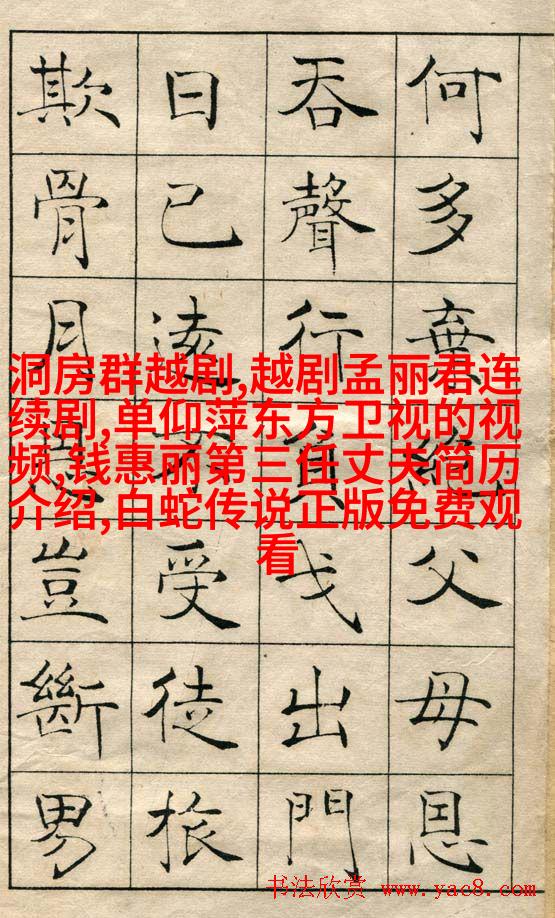 何多棄絕父母恩
吞聲行負戈出門
日已遠不受徒旅
欺骨肉恩豈斷男
洞房群越剧,越剧孟丽君连
续剧,单仰萍东方卫视的视
频,钱惠丽第三任丈夫简历
介绍,白蛇传说正版免费观
看
书法欣赏 www.yac8.com